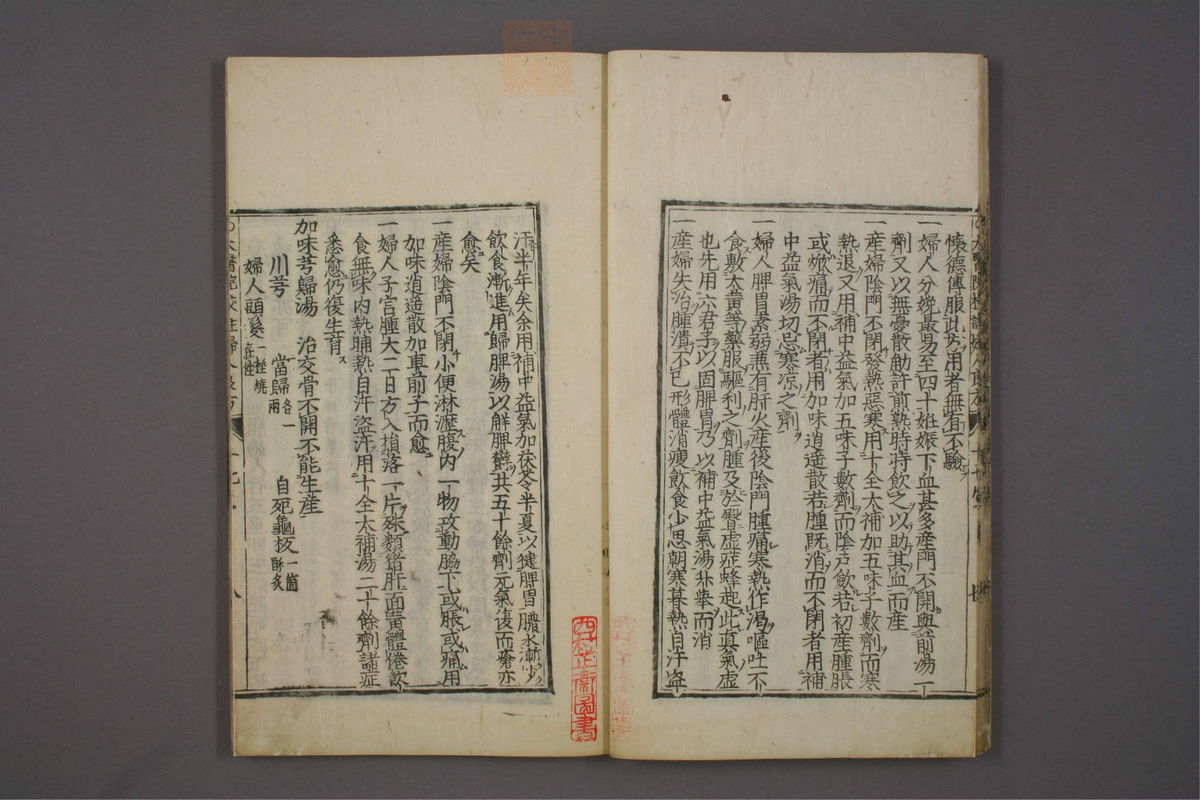 懷德傳服此方用者無有不驗
一婦人分娩最易至四十姙娠下血甚多產門不開與前湯一
劑又以無憂散勵許前熟時時飲之以助其血而產
一產婦陰門不閉發熱惡寒用十全大補加五味子數劑而寒
熱退又用補中益氣加五味子數劑而陰戶飲若初產腫脹
或焮痛而不閉者用加味逍遙散若腫既消而不閉者用補
中益氣湯切忌寒凉之劑
一婦人脾胃素弱兼有肝火產後陰門腫痛寒熱作渴嘔吐不
食敷大黃等藥服驅利之劑腫及於臀虛症蜂起此真氣虛
也先用六君子以固脾胃乃以補中益氣湯升舉而消
一產婦失治腫潰不已形體消瘦飲食少思朝寒暮熱自汗盗
汗半年矣余用補中益氣加茯苓半夏以健脾胃膿水漸少
飲食漸進用歸脾湯以解脾鬱共五十餘劑元氣復而瘡亦
愈矣
一產婦陰門不閉小便淋瀝腹内一物攻動脇下或脹或痛用
加味逍遙散加車前子而愈
一婦人子宮腫大二日方入損落一片殊類猪肝面黃體倦飲
食無味内熱晡熱自汗盗汗用十全大補湯二十餘劑諸症
悉愈仍復生育
加味芎歸湯 治交骨不開不能生產
川芎 當歸各一兩 自死龜板一箇酥炙
婦人頭髮一握燒存性
西荘芷齋圖書